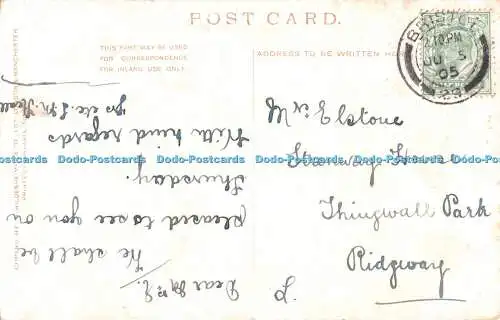 POST CARD.
THIS PART MAY BE USED
FOR CORRESPONDENCE
FOR INLAND USE ONLY.
ADDRESS TO BE WRITTEN
BRISTOL
10.PM
JU 5
05
Dear Mrs E.
We shall be
pleased to see you on
Thursday.
With kind regards
Yrs etc.
Mrs Elstone
Thingwall Park
Ridgway
Dodo-Postcards Dodo-Postcards Dodo-Postcards Dodo-Postcards Dodo-Postcards Dodo-Postcards